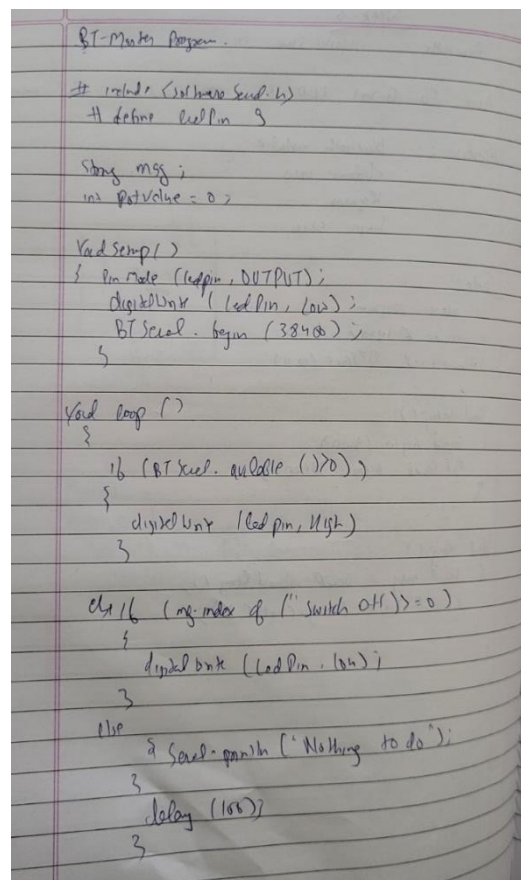 BT-Master Program.
# include <software Serial.h>
# define ledPin 9
String msg ;
int PotValue = 0 ;
Void Setup ( )
{ Pin Mode (ledpin, OUTPUT) ;
digitalWrite ( led Pin, Low) ;
BT Serial . begin (38400) ;
}
Void loop ( )
{
if (BT Serial. available ( )>0) ;
{
digital Write (led pin, High)
}
else if (msg. index of (" Switch Off )>=0 )
{
digital Write (Led Pin . low) ;
}
else
{ Serial. println ("Nothing to do") ;
}
delay (100) ;
}